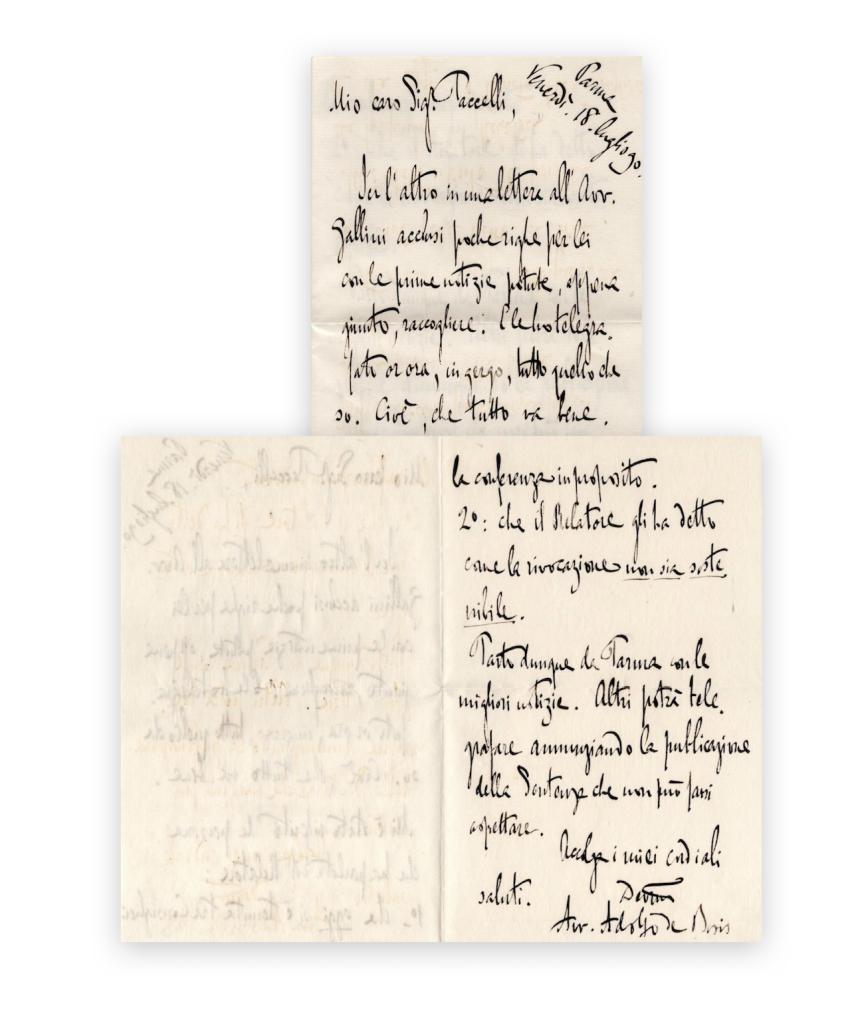 Parma
Venerdì. 18. luglio 90.
Mio caro Sigr. Paccelli,
Ier l'altro in una lettera all'Avv.
Gallini acclusi poche righe per lei
con le prime notizie potute, appena
giunto, raccogliere. E le ho telegra.
fato or ora, in gergo, tutto quello che
so. Cioè, che tutto va bene.
la conferenza in proposito.
2º: che il Relatore gli ha detto
come la rivocazione non sia soste.
nibile.
Parto dunque da Parma con le
migliori notizie. Altri potrà tele.
grafare annunziando la publicazione
della Sentenza che non può farsi
aspettare.
Accolga i miei cordiali
saluti.
Devmo
Avv. Adolfo de Bosis